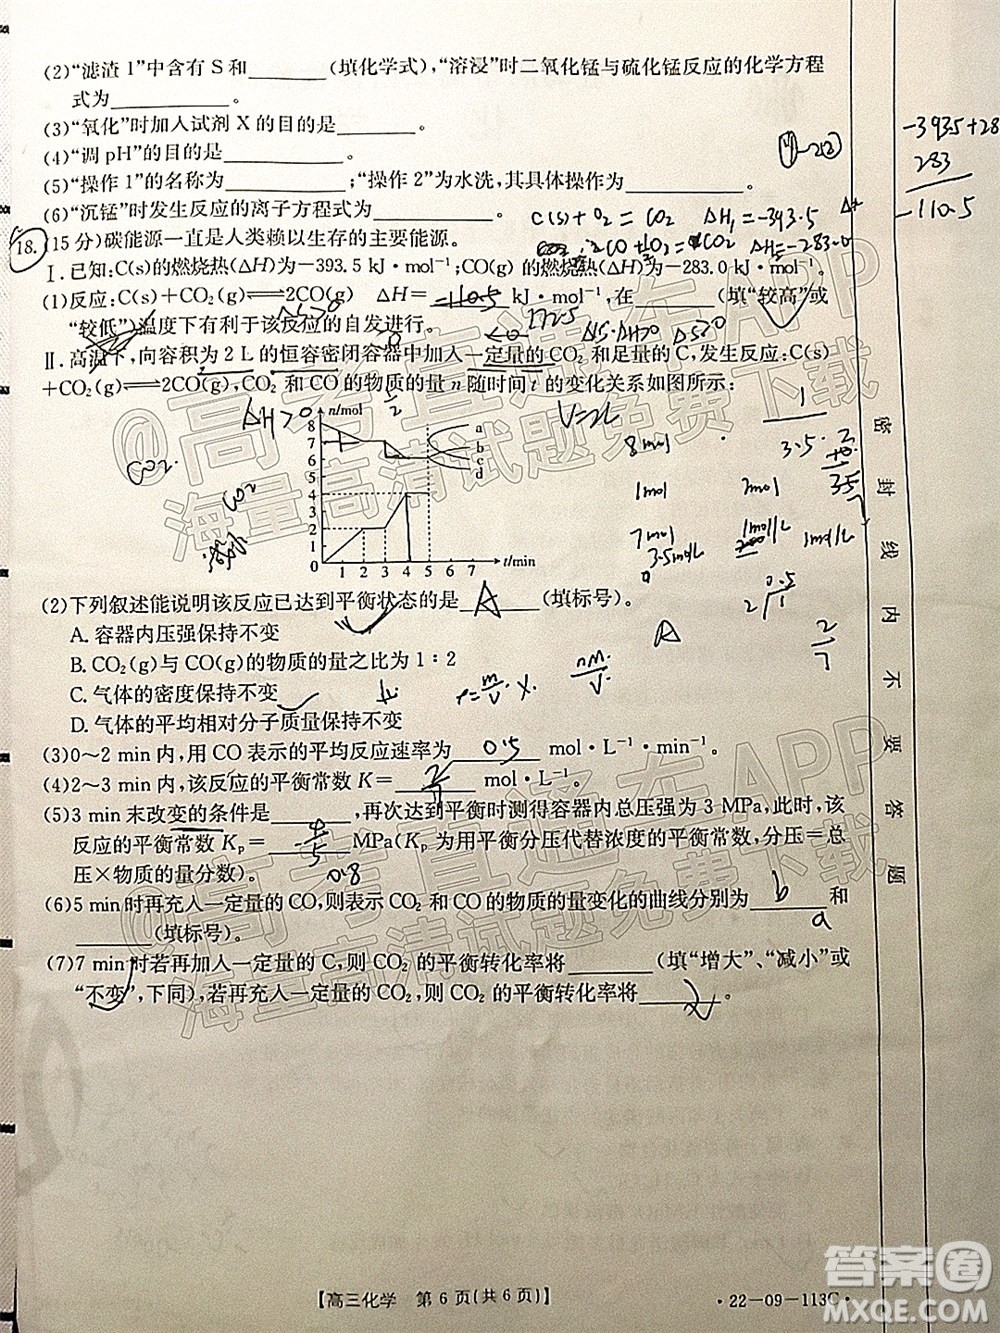 (2)“滤渣 1”中含有 S 和________(填化学式),“溶浸”时二氧化锰与硫化锰反应的化学方程
式为____________。
(3)“氧化”时加入试剂 X 的目的是____________。
(4)“调 pH”的目的是____________。
(5)“操作 1”的名称为____________;“操作 2”为水洗,其具体操作为____________。
(6)“沉锰”时发生反应的离子方程式为____________。
-393.5+28
283
-110.5
C(s)+O₂=CO₂ ΔH₁=-393.5
18.(15 分)碳能源一直是人类赖以生存的主要能源。
Ⅰ.已知:C(s)的燃烧热(ΔH)为-393.5 kJ·mol⁻¹;CO(g)的燃烧热(ΔH)为-283.0 kJ·mol⁻¹。
(1)反应:C(s)+CO₂(g)⇌2CO(g) ΔH=________kJ·mol⁻¹,在________(填“较高”或
-110.5
“较低”)温度下有利于该反应的自发进行。
172.5
Ⅱ.高温下,向容积为 2 L 的恒容密闭容器中加入一定量的 CO₂ 和足量的 C,发生反应:C(s)
+CO₂(g)⇌2CO(g),CO₂ 和 CO 的物质的量 n 随时间 t 的变化关系如图所示:
ΔH>0
V=2L
n/mol
8
7
6
5
4
3
2
1
0
1 2 3 4 5 6 7 t/min
a
b
c
d
CO₂
CO₂
减小
8mol
1mol 2mol
7mol 1mol/L 1mol/L
3.5mol/L
(2)下列叙述能说明该反应已达到平衡状态的是____________(填标号)。
A
A. 容器内压强保持不变
B. CO₂(g)与 CO(g)的物质的量之比为 1∶2
C. 气体的密度保持不变
D. 气体的平均相对分子质量保持不变
A
(3)0~2 min 内,用 CO 表示的平均反应速率为____________mol·L⁻¹·min⁻¹。
0.5
(4)2~3 min 内,该反应的平衡常数 K=____________mol·L⁻¹。
2/7
(5)3 min 末改变的条件是________,再次达到平衡时测得容器内总压强为 3 MPa,此时,该
反应的平衡常数 Kp=________MPa(Kp 为用平衡分压代替浓度的平衡常数,分压=总
压×物质的量分数)。
4/5
0.8
(6)5 min 时再充入一定量的 CO,则表示 CO₂ 和 CO 的物质的量变化的曲线分别为________和
b
a
________(填标号)。
(7)7 min 时若再加入一定量的 C,则 CO₂ 的平衡转化率将________(填“增大”、“减小”或
“不变”,下同),若再充入一定量的 CO₂,则 CO₂ 的平衡转化率将________。
密封线内不要答题
@高考直通车APP
海量高清试题免费下载
@高考直通车APP
海量高清试题免费下载
【高三化学 第 6 页(共 6 页)】
·22-09-113C·
答案圈
MXQE.COM